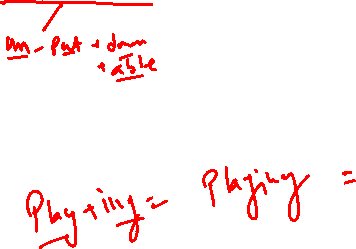 un - Put + down
+ able
Play + ing = Playing =